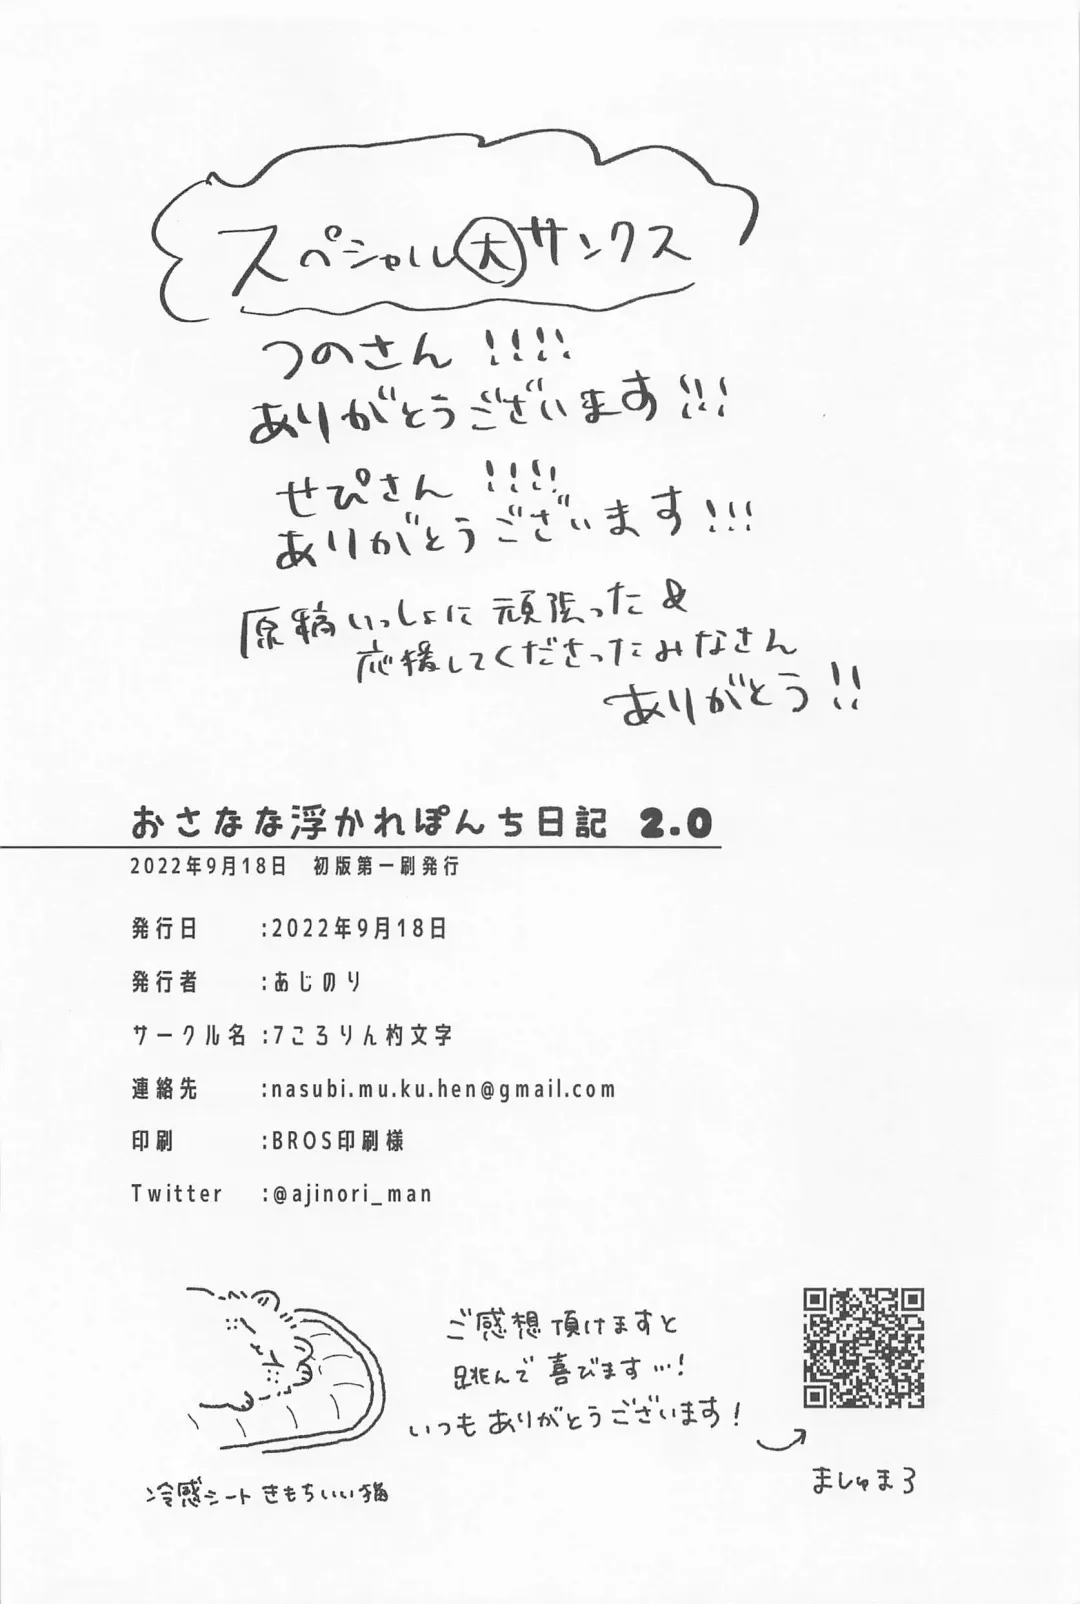 スペシャル大サンクス
つのさん !!!!
ありがとうございます!!!
せぴさん !!!!
ありがとうございます!!!
原稿いっしょに頑張った&
応援してくださったみなさん
ありがとう!!
おさなな浮かれぽんち日記 2.0
2022年9月18日 初版第一刷発行
発行日 :2022年9月18日
発行者 :あじのり
サークル名 :7ころりん杓文字
連絡先 :nasubi.mu.ku.hen@gmail.com
印刷 :BROS印刷様
Twitter :@ajinori_man
ご感想頂けますと
跳んで喜びます…!
いつもありがとうございます!
ましゅまろ
冷感シートきもちいい猫